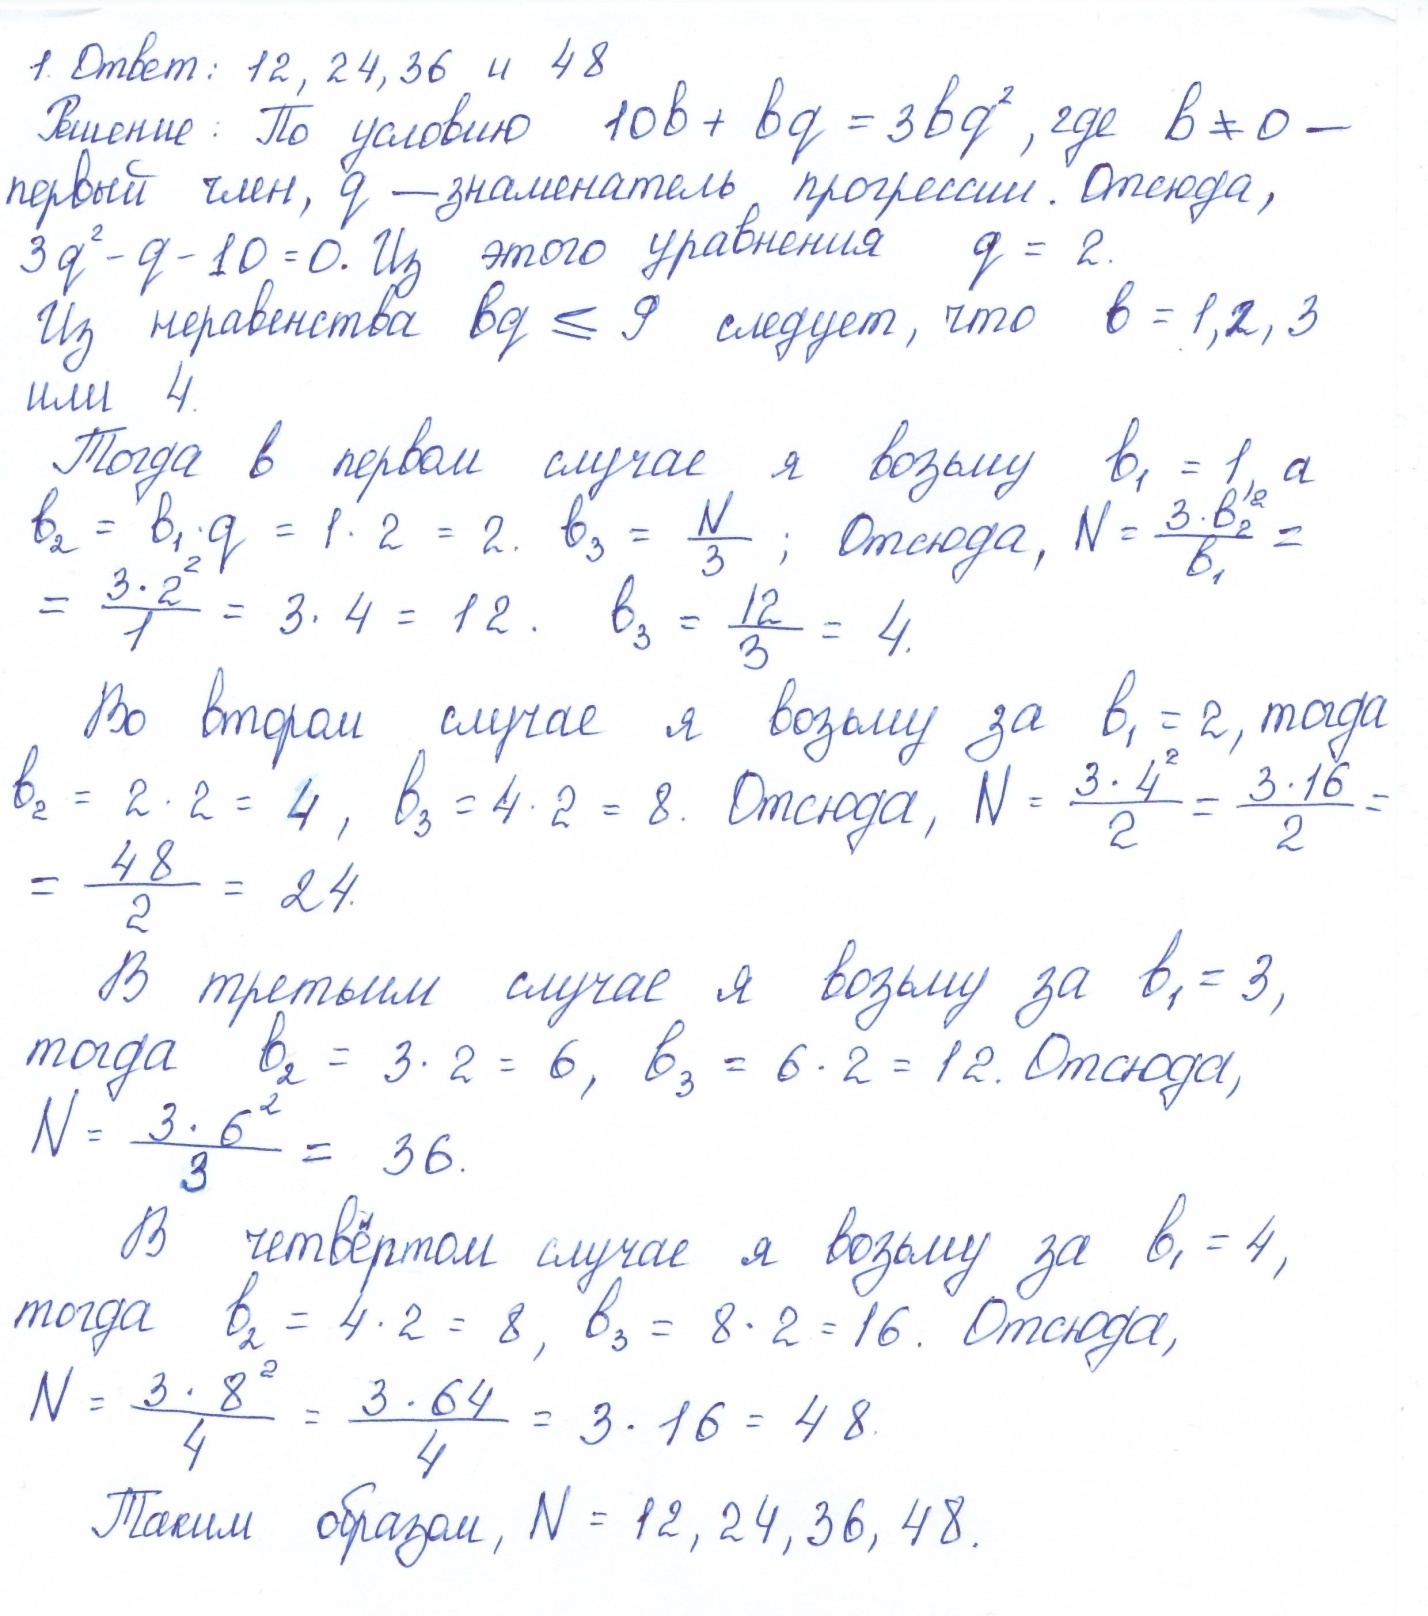 1. Ответ: 12, 24, 36 и 48
Решение: По условию 10b + bq = 3bq², где b ≠ 0 —
первый член, q — знаменатель прогрессии. Отсюда,
3q² - q - 10 = 0. Из этого уравнения q = 2.
Из неравенства bq ≤ 9 следует, что b = 1, 2, 3
или 4.
Тогда в первом случае я возьму b₁ = 1, а
b₂ = b₁·q = 1·2 = 2. b₃ = N/3; Отсюда, N = 3·b₂²/b₁ =
= 3·2²/1 = 3·4 = 12. b₃ = 12/3 = 4.
Во втором случае я возьму за b₁ = 2, тогда
b₂ = 2·2 = 4, b₃ = 4·2 = 8. Отсюда, N = 3·4²/2 = 3·16/2 =
= 48/2 = 24.
В третьим случае я возьму за b₁ = 3,
тогда b₂ = 3·2 = 6, b₃ = 6·2 = 12. Отсюда,
N = 3·6²/3 = 36.
В четвёртом случае я возьму за b₁ = 4,
тогда b₂ = 4·2 = 8, b₃ = 8·2 = 16. Отсюда,
N = 3·8²/4 = 3·64/4 = 3·16 = 48.
Таким образом, N = 12, 24, 36, 48.